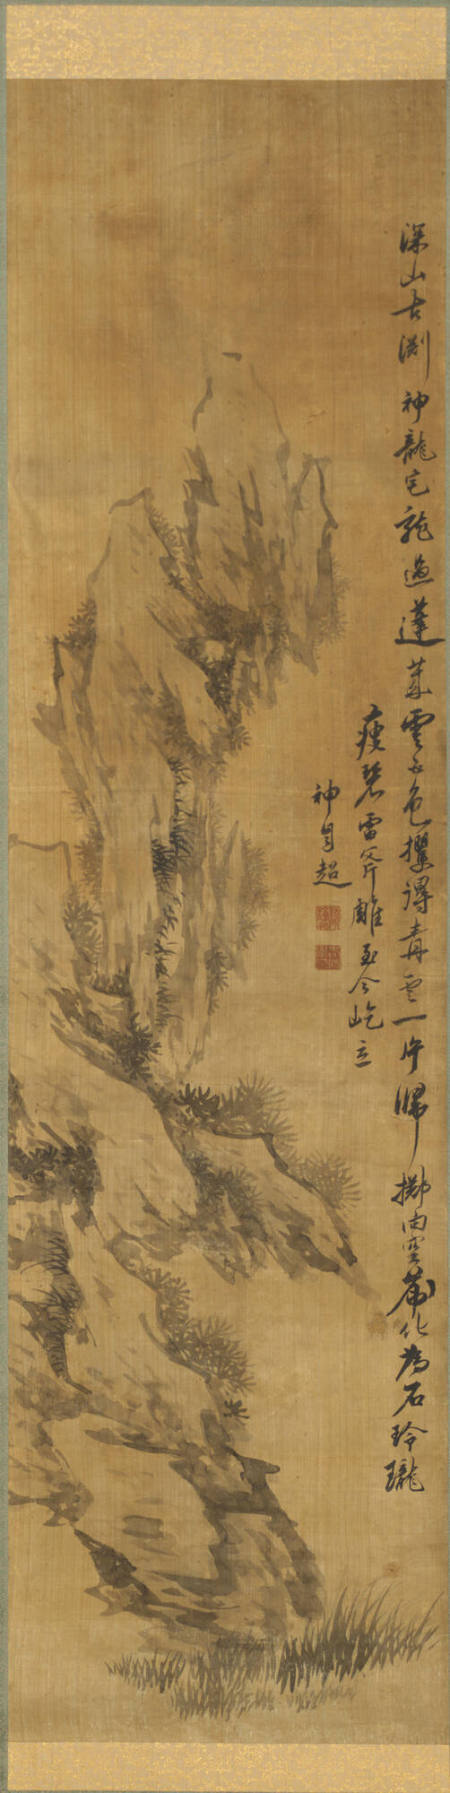 深山古淵神龍宅龍過蓬萊雲五色攫得青雲一片歸擲向空化為石玲瓏
瘦碧雷斧雕至今屹立
神自超